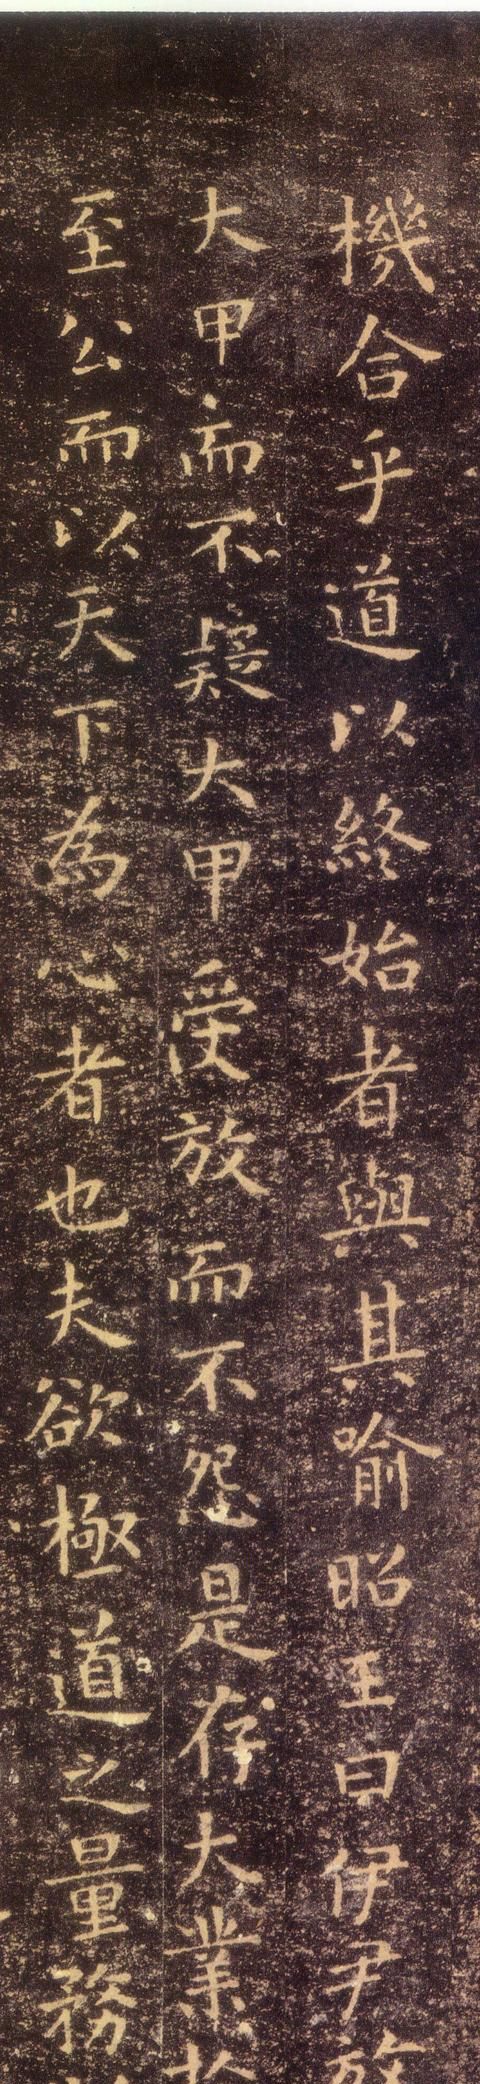 機合乎道以終始者與其喻昭王曰伊尹放
大甲而不疑大甲受放而不怨是存大業於
至公而以天下為心者也夫欲極道之量務